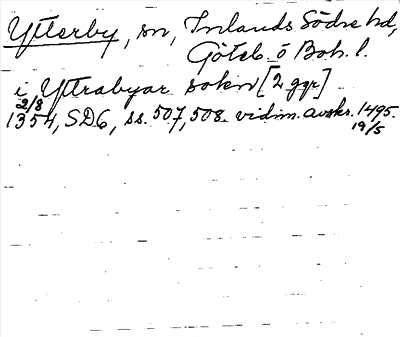 Ytterby, sn, Inlands Södre hd,
Göteb. o Boh. l.
i Yttrabyar sokn [2 ggr]
2/8
1354, SD6, ss. 507, 508. vidim. avskr. 1495.
19/5